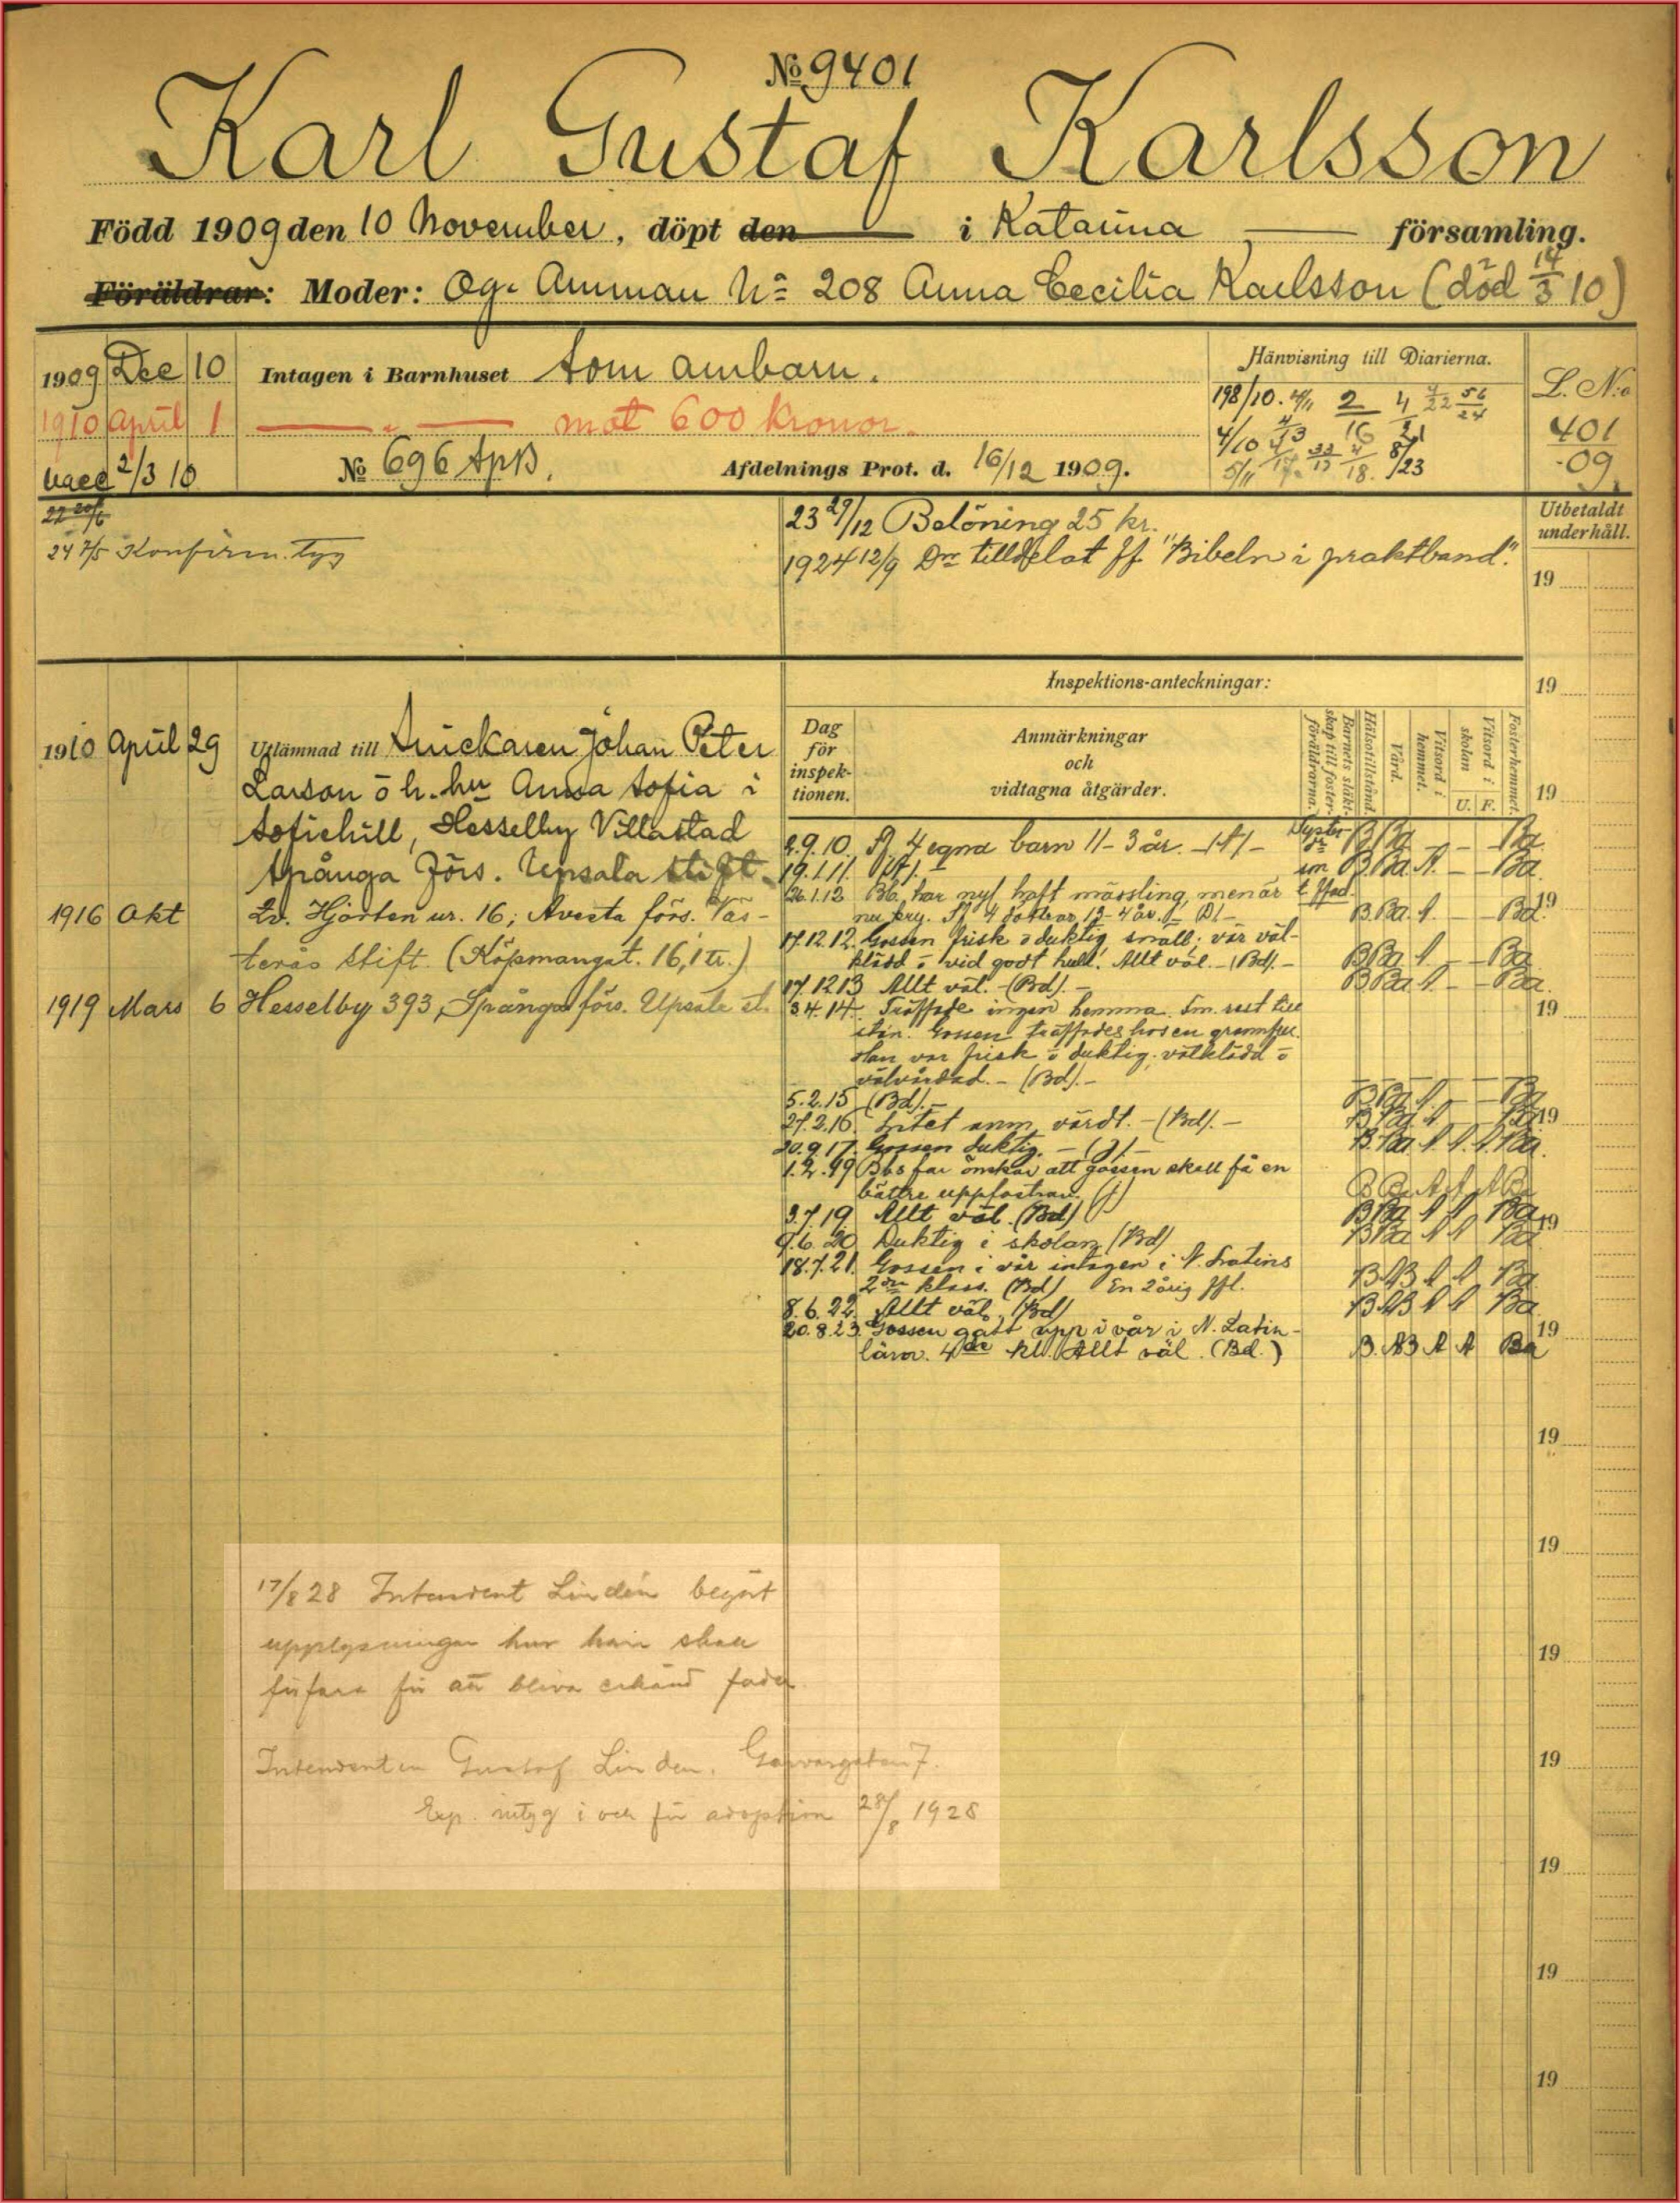 No 9401
Karl Gustaf Karlsson
Född 1909 den 10 November, döpt den — i Katarina — församling.
Föräldrar: Moder: Og. Amman No 208 Anna Cecilia Karlsson (död 14/3 10)
1909 Dec 10 Intagen i Barnhuset som ambarn.
1910 April 1 — " — mot 600 kronor.
vacc 2/3 10 No 696 Afdelnings Prot. d. 16/12 1909.
Hänvisning till Diarierna.
198/10.
L. No
401
09
Utbetaldt underhåll.
24 7/5 Konfirm. tyg
23 29/12 Belöning 25 kr.
1924 12/9 Do tilldelat ff. "Bibeln i praktband."
1910 April 29 Utlämnad till Snickaren Johan Peter
Larson o h. hu Anna Sofia i
Sofiehill, Hesselby Villastad
Spånga Förs. Upsala Stift.
1916 Okt Kv. Hjorten nr. 16; Avesta förs. Väs-
terås Stift. (Köpmangat. 16, 1 tr.)
1919 Mars 6 Hesselby 393, Spånga förs. Upsala st.
Inspektions-anteckningar:
Dag för inspek-tionen.
Anmärkningar
och
vidtagna åtgärder.
Barnets släkt-skap till foster-föräldrarna.
Hälsotillstånd
Vård.
Vitsord i hemmet.
Vitsord i skolan
U. F.
Fosterhemmet.
2.9.10. 4 egna barn 11-3 år.
19.1.11.
26.1.12 Bb. har nyl. haft mässling, men är
nu kry. 4 döttrar 12-4 år.
17.12.12. Gossen frisk o duktig, snäll; vär väl-
klädd o vid godt hull. Allt väl. - (Bd). -
17.12.13 Allt väl. - (Bd). -
3.4.14. Träffade ingen hemma. Fm. rest till
stan. Gossen träffades hos en grannfru.
Han var frisk o duktig; välklädd o
välvårdad. - (Bd). -
5.2.15 (Bd). -
27.2.16. Intet anm. värdt. - (Bd). -
20.9.17. Gossen duktig. -
1.2.19 Bbs far önskar att gossen skall få en
bättre uppfostran.
3.7.19 Allt väl. (Bd)
9.6.20 Duktig i skolan (Bd)
18.7.21. Gossen i vår intagen i N. Latins
2dra klass. (Bd) En 2årig ffl.
8.6.22. Allt väl. (Bd)
20.8.23. Gossen gått upp i vår i N. Latin-
lärov. 4de kl. Allt väl. (Bd.)
17/8 28 Intendent Lindén begärt
upplysningar hur han skall
förfara för att bliva erkänd fader
Intendenten Gustaf Linden. Garvargatan 7.
Exp. intyg i och för adoption 28/8 1928
19
19
19
19
19
19
19
19
19
19
19
19
19
19
19